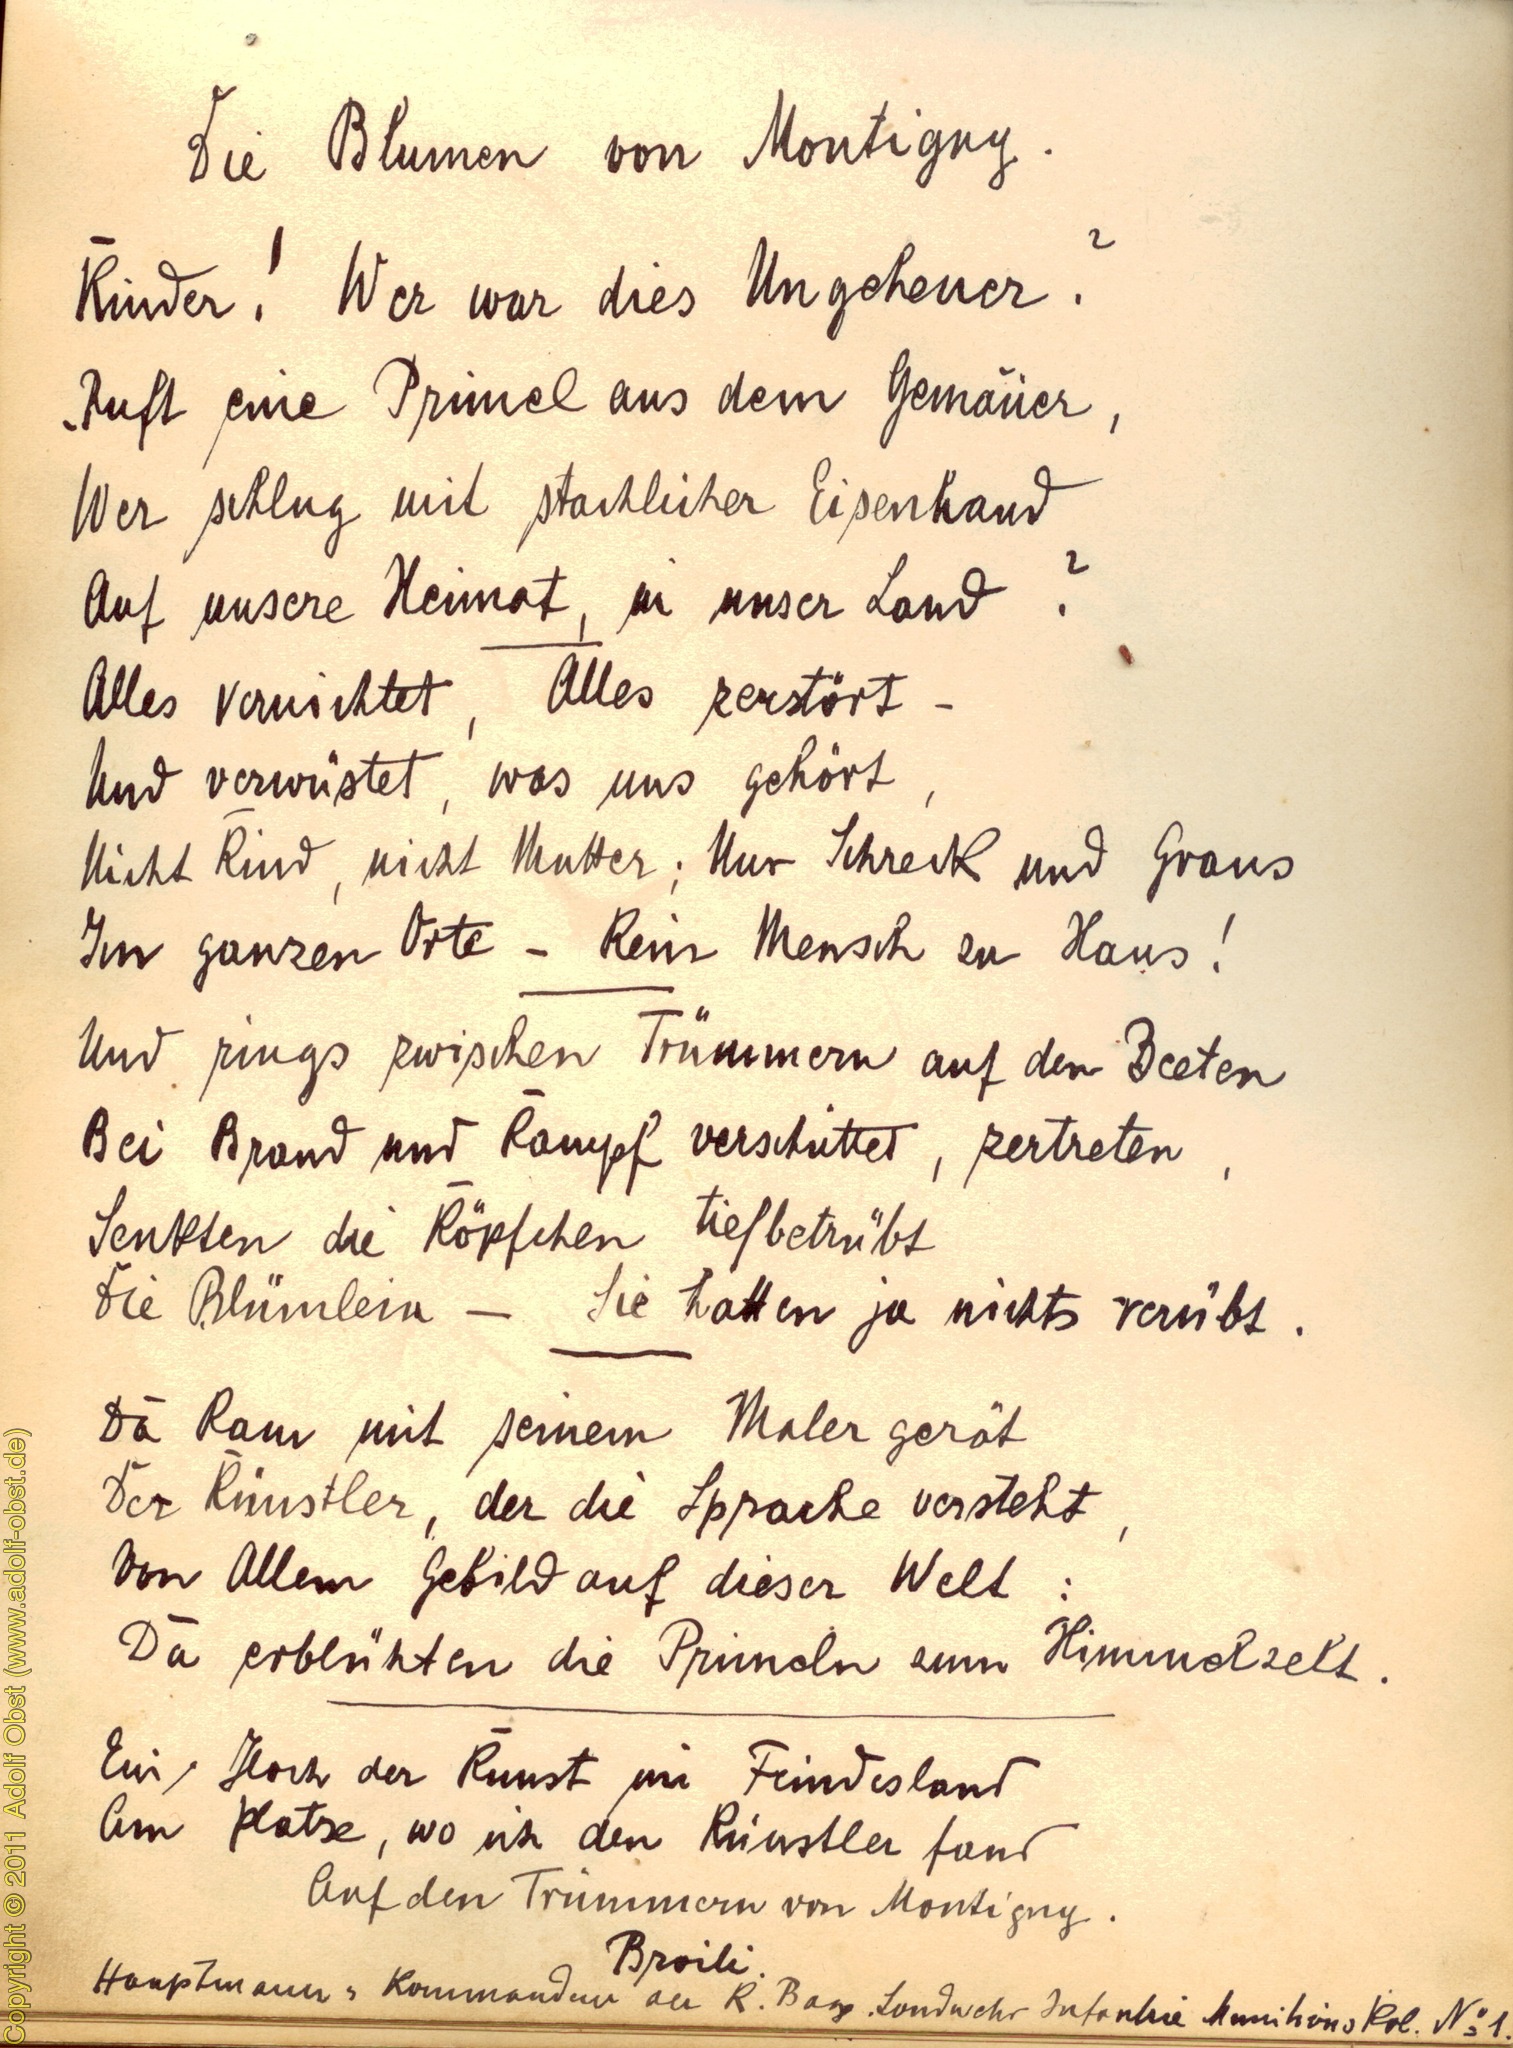 Die Blumen von Montigny.
Kinder! Wer war dies Ungeheuer?
Ruft eine Primel aus dem Gemäuer,
Wer schlug mit stachlicher Eisenhand
Auf unsere Heimat, in unser Land?
Alles vernichtet, Alles zerstört -
Und verwüstet, was uns gehört,
Nicht Kind, nicht Mutter; Nur Schreck und Graus
Im ganzen Orte - Kein Mensch zu Haus!
Und rings zwischen Trümmern auf den Beeten
Bei Brand und Kampf verschüttet, zertreten,
Senkten die Köpfchen tiefbetrübt
Die Blümlein — Sie hatten ja nichts verübt.
Da kam mit seinem Malergerät
Der Künstler, der die Sprache versteht,
Von Allem Gebild auf dieser Welt:
Da erblühten die Primeln zum Himmelszelt.
Ein Hoch der Kunst im Feindesland
Am Platze, wo ich den Künstler fand
Auf den Trümmern von Montigny.
Broili.
Hauptmann u Kommandeur der K. Bayr. Landwehr Infanterie Munitions Kol. No 1.
Copyright © 2011 Adolf Obst (www.adolf-obst.de)